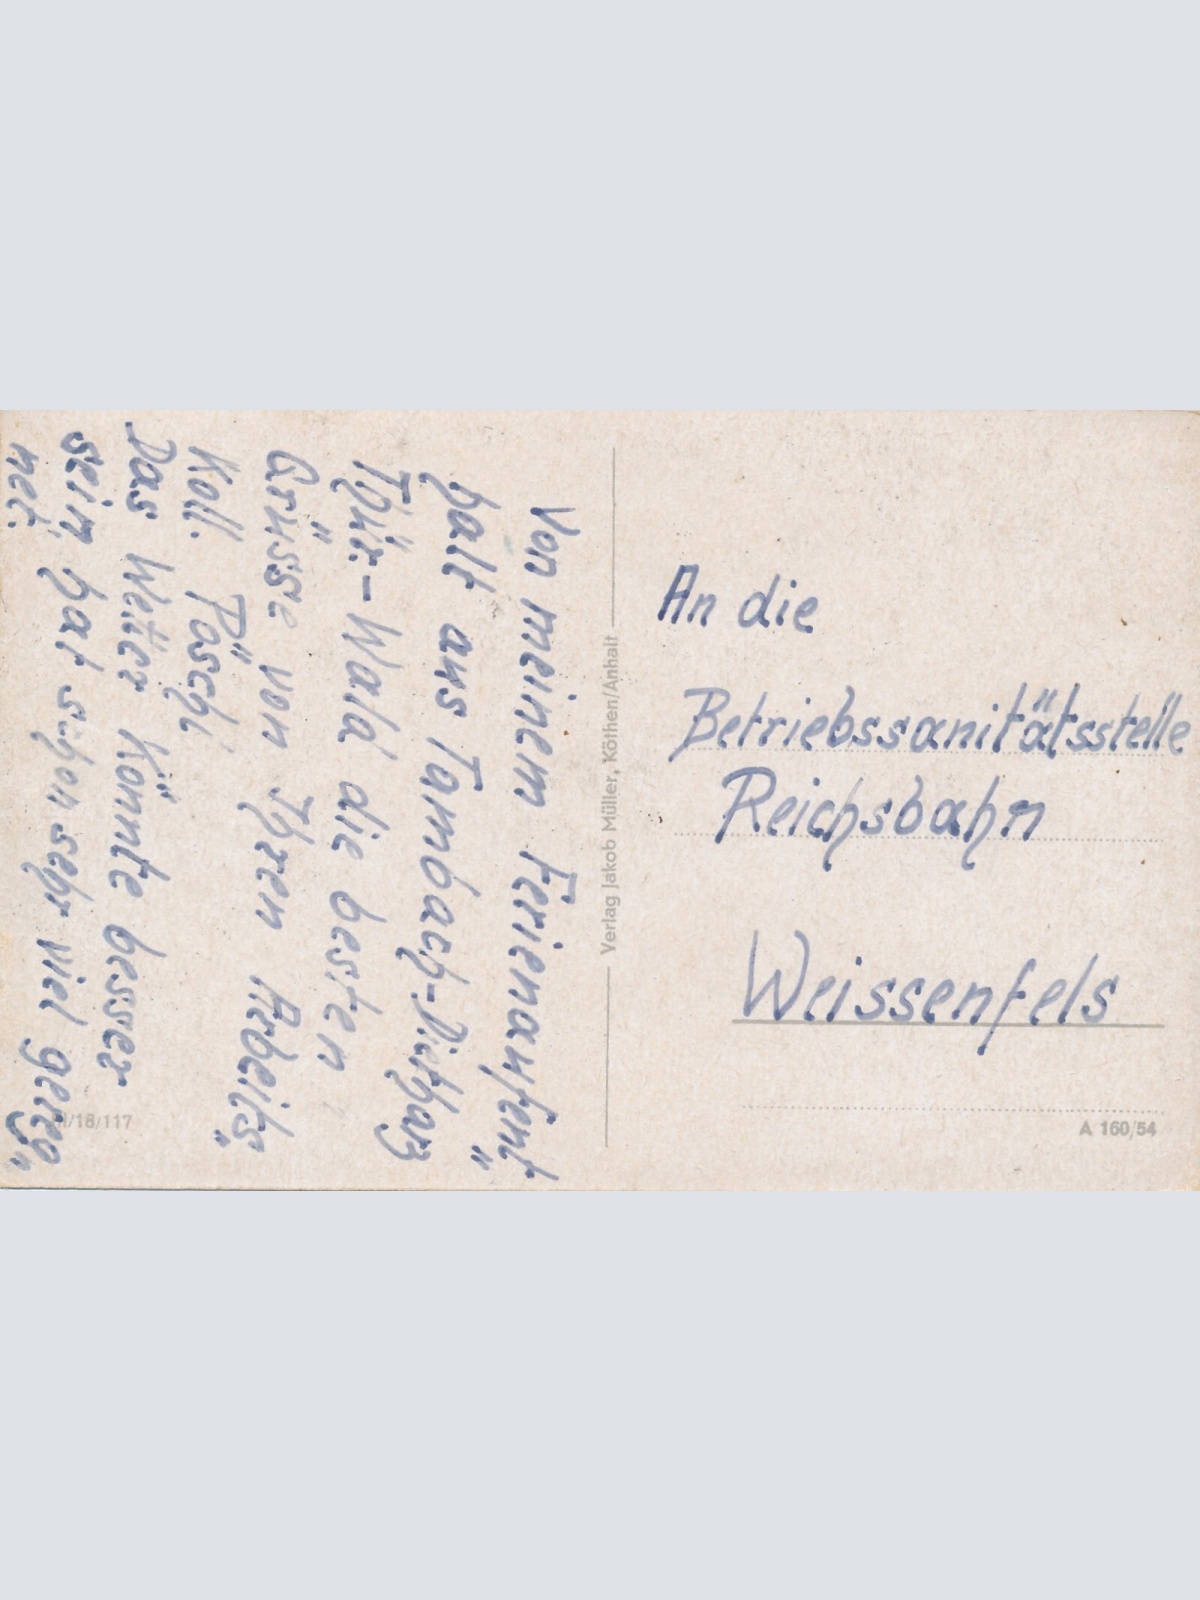 Von meinem Ferienaufent„
halt aus Tambach-Dietharz
Thür.-Wald die besten
Grüsse von Ihren Arbeits„
Koll. Päschl
Das Wetter könnte besser
sein, hat schon sehr viel gereg„
net.
Verlag Jakob Müller, Köthen/Anhalt
/18/117
An die
Betriebssanitätsstelle
Reichsbahn
Weissenfels
A 160/54